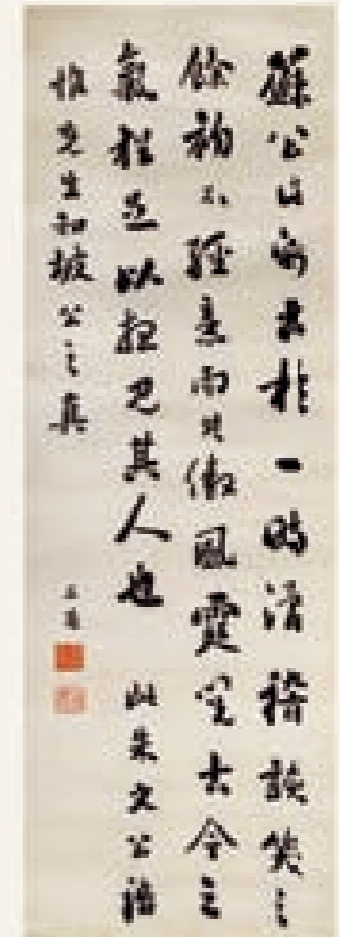 蘇公此紙出於一時滑稽詼笑之
餘初不經意而其傲風霆閱古今之
氣猶足以想見其人也 此朱文公語
惟先生知坡公之真
石菴